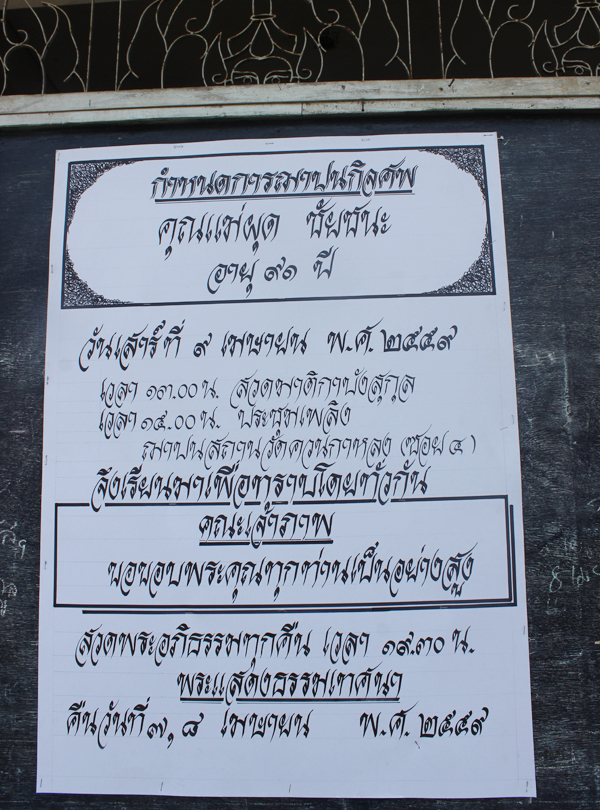 กำหนดการฌาปนกิจศพ
คุณแม่ผุด ชัยชนะ
อายุ ๙๑ ปี
วันเสาร์ที่ ๙ เมษายน พ.ศ. ๒๕๕๙
เวลา ๑๓.๐๐ น. สวดมาติกาบังสุกุล
เวลา ๑๕.๐๐ น. ประชุมเพลิง
ฌาปนสถานวัดควนกาหลง (ซอย ๔)
จึงเรียนมาเพื่อทราบโดยทั่วกัน
คณะเจ้าภาพ
ขอขอบพระคุณทุกท่านเป็นอย่างสูง
สวดพระอภิธรรมทุกคืน เวลา ๑๙.๓๐ น.
พระแสดงธรรมเทศนา
คืนวันที่ ๗, ๘ เมษายน พ.ศ. ๒๕๕๙